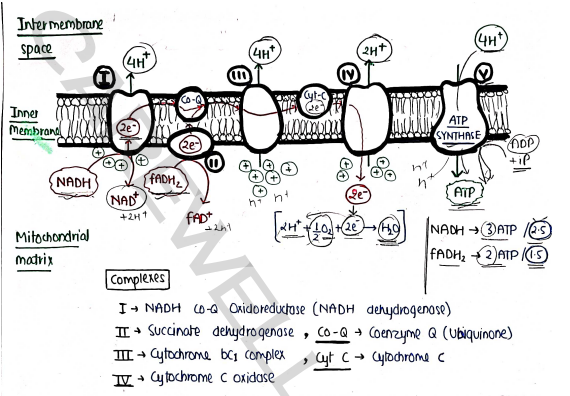 Intermembrane
space
4H⁺
4H⁺
2H⁺
4H⁺
I
III
IV
V
Co-Q
Cyt-C
2e⁻
Inner
Membrane
2e⁻
2e⁻
II
ATP
SYNTHASE
ADP
+ iP
NADH
NAD⁺
+2H⁺
fADH₂
fAD⁺
+2H⁺
H⁺ H⁺
2e⁻
H⁺
H⁺
ATP
[2H⁺ + 1/2 O₂ + 2e⁻ → H₂O]
NADH → 3 ATP / 2.5
fADH₂ → 2 ATP / 1.5
Mitochondrial
matrix
Complexes
I → NADH Co-Q Oxidoreductase (NADH dehydrogenase)
II → Succinate dehydrogenase , Co-Q → Coenzyme Q (Ubiquinone)
III → Cytochrome bC₁ complex , Cyt C → Cytochrome C
IV → Cytochrome C oxidase
CAREWELL